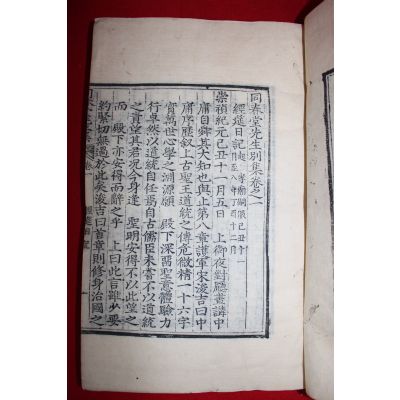 同春堂先生別集卷之一
經筵日記 起 孝廟嗣服己丑十一
月至八年丁酉十二月
崇禎紀元己丑十一月五日 上御夜對廳晝講中
庸自舜其大知也與止第八章護軍宋浚吉曰中
庸序歷叙上古聖王道統之傳危微精一十六字
實萬世心學之淵源願 殿下深翫聖意體驗力
行卓然以道統自任焉自古儒臣未嘗不以道統
之責望其君況今身逢 聖明安得不以此望之
而 殿下亦安得而辭之乎 上曰此言雖少要
約緊切無過於此矣浚吉曰首章則修身治國之